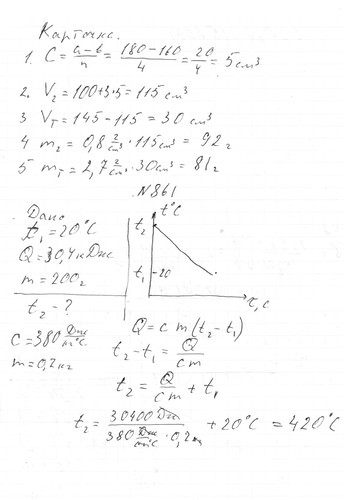 Карточка.
1. C = a-b/n = 180-160/4 = 20/4 = 5 см³
2. V₂ = 100+3·5 = 115 см³
3 Vт = 145-115 = 30 см³
4 m₂ = 0,8 г/см³ · 115 см³ = 92 г
5 mт = 2,7 г/см³ · 30 см³ = 81 г
N861
Дано
t₁ = 20°C
Q = 30,4 кДж
m = 200 г
t₂ - ?
C = 380 Дж/кг°C
m = 0,2 кг
t°C
t₂
t₁ 20
τ, с
Q = c m (t₂ - t₁)
t₂ - t₁ = Q/cm
t₂ = Q/cm + t₁
t₂ = 30400 Дж/380 Дж/кг°C · 0,2 кг + 20°C = 420°C